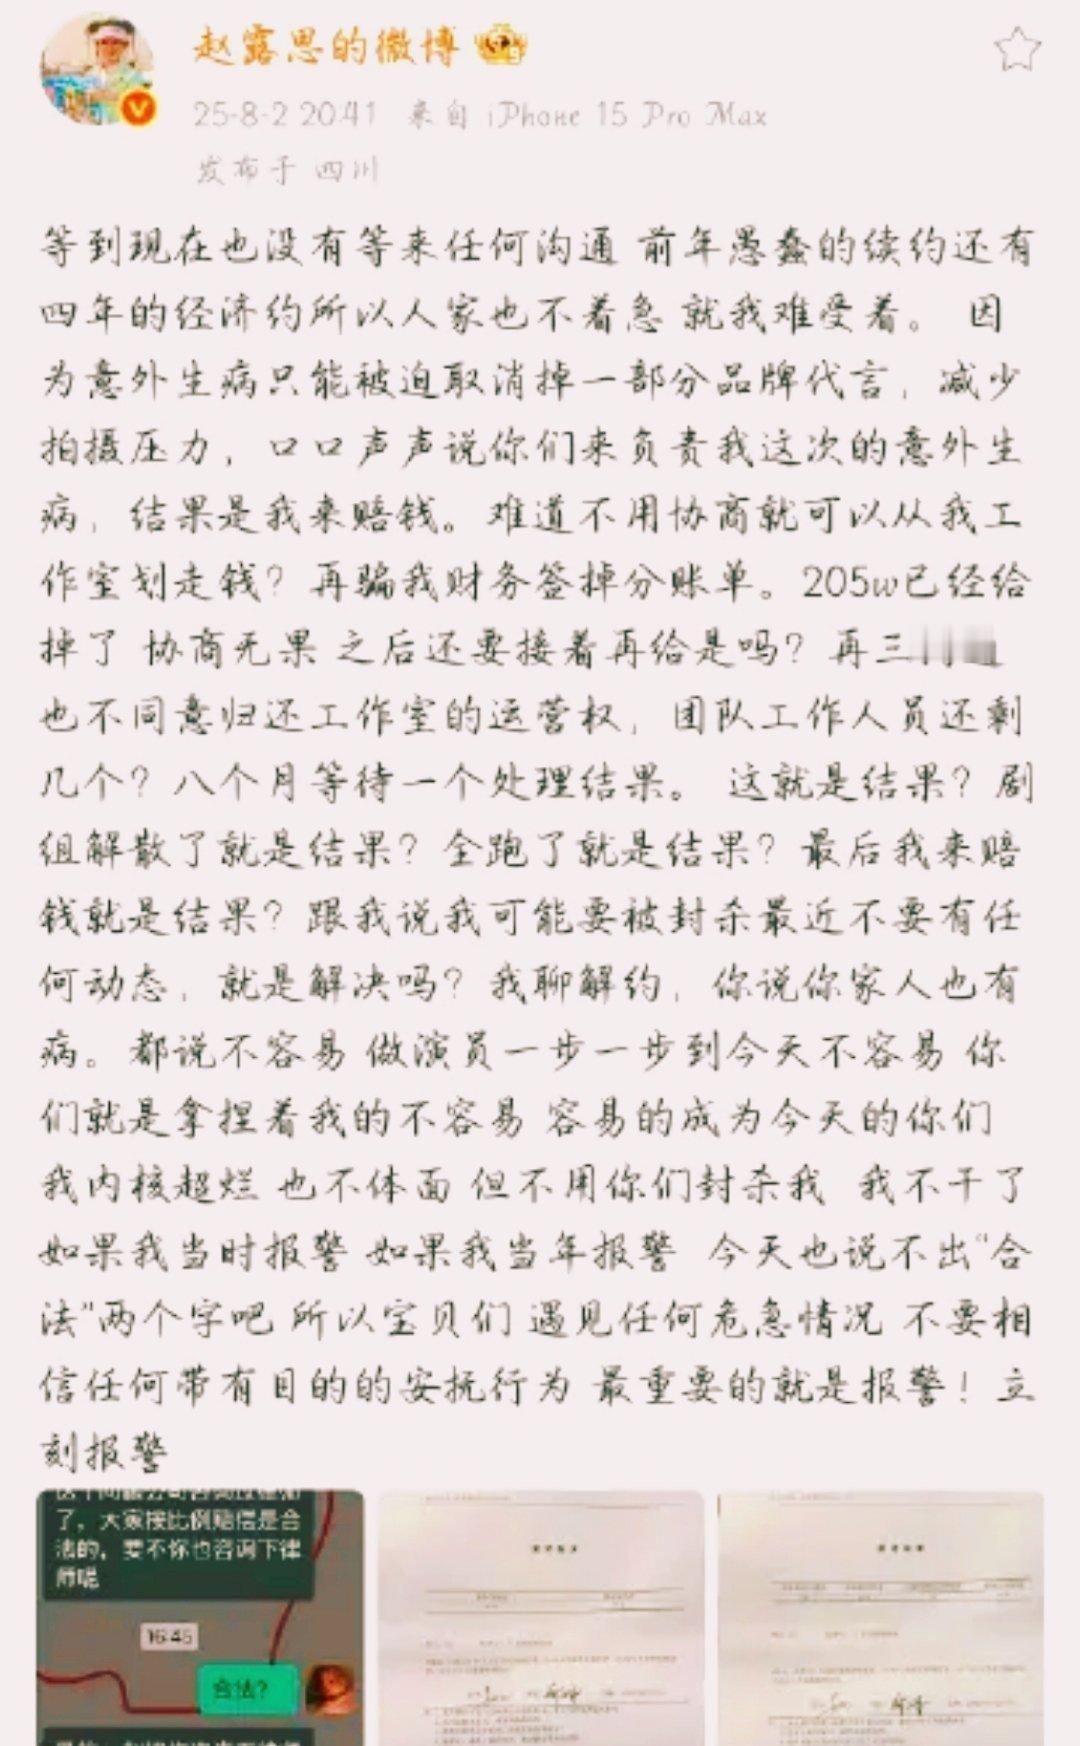 赵露思的微博
25-8-2 20:41 来自 iPhone 15 Pro Max
发布于 四川
等到现在也没有等来任何沟通 前年愚蠢的续约还有
四年的经济约所以人家也不着急 就我难受着。 因
为意外生病只能被迫取消掉一部分品牌代言，减少
拍摄压力，口口声声说你们来负责我这次的意外生
病，结果是我来赔钱。难道不用协商就可以从我工
作室划走钱？再骗我财务签掉分账单。205w已经给
掉了 协商无果 之后还要接着再给是吗？再三
也不同意归还工作室的运营权，团队工作人员还剩
几个？八个月等待一个处理结果。 这就是结果？剧
组解散了就是结果？全跑了就是结果？最后我来赔
钱就是结果？跟我说我可能要被封杀最近不要有任
何动态，就是解决吗？我聊解约，你说你家人也有
病。都说不容易 做演员一步一步到今天不容易 你
们就是拿捏着我的不容易 容易的成为今天的你们
我内核超烂 也不体面 但不用你们封杀我 我不干了
如果我当时报警 如果我当年报警 今天也说不出“合
法”两个字吧 所以宝贝们 遇见任何危急情况 不要相
信任何带有目的的安抚行为 最重要的就是报警！立
刻报警
了，大家按比例赔偿是合
法的，要不你也咨询下律
师呢
16:45
合法？